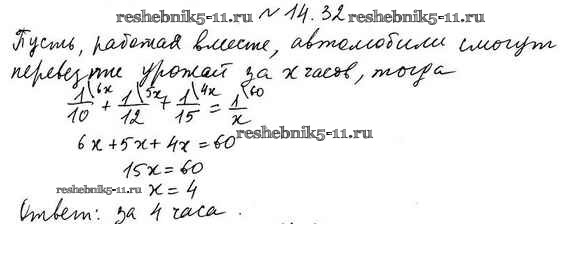 reshebnik5-11.ru № 14.32 reshebnik5-11.ru
Пусть, работая вместе, автомобили смогут
перевезти урожай за x часов, тогда
1/10 \6x + 1/12 \5x + 1/15 \4x = 1/x \60
reshebnik5-11.ru
6x+5x+4x=60
15x=60
reshebnik5-11.ru x=4
Ответ: за 4 часа.